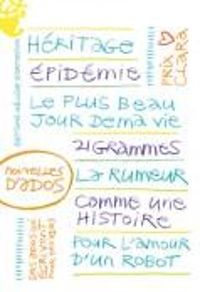 HÉRITAGE
ÉPIDÉMIE
PRIX
CLARA
LE PLUS BEAU
JOUR DE MA VIE
21 GRAMMES
NOUVELLES
D'ADOS
LA RUMEUR
COMME UNE
HISTOIRE
DES ADOS QUI
ÉCRIVENT
POUR L'AMOUR
D'UN ROBOT